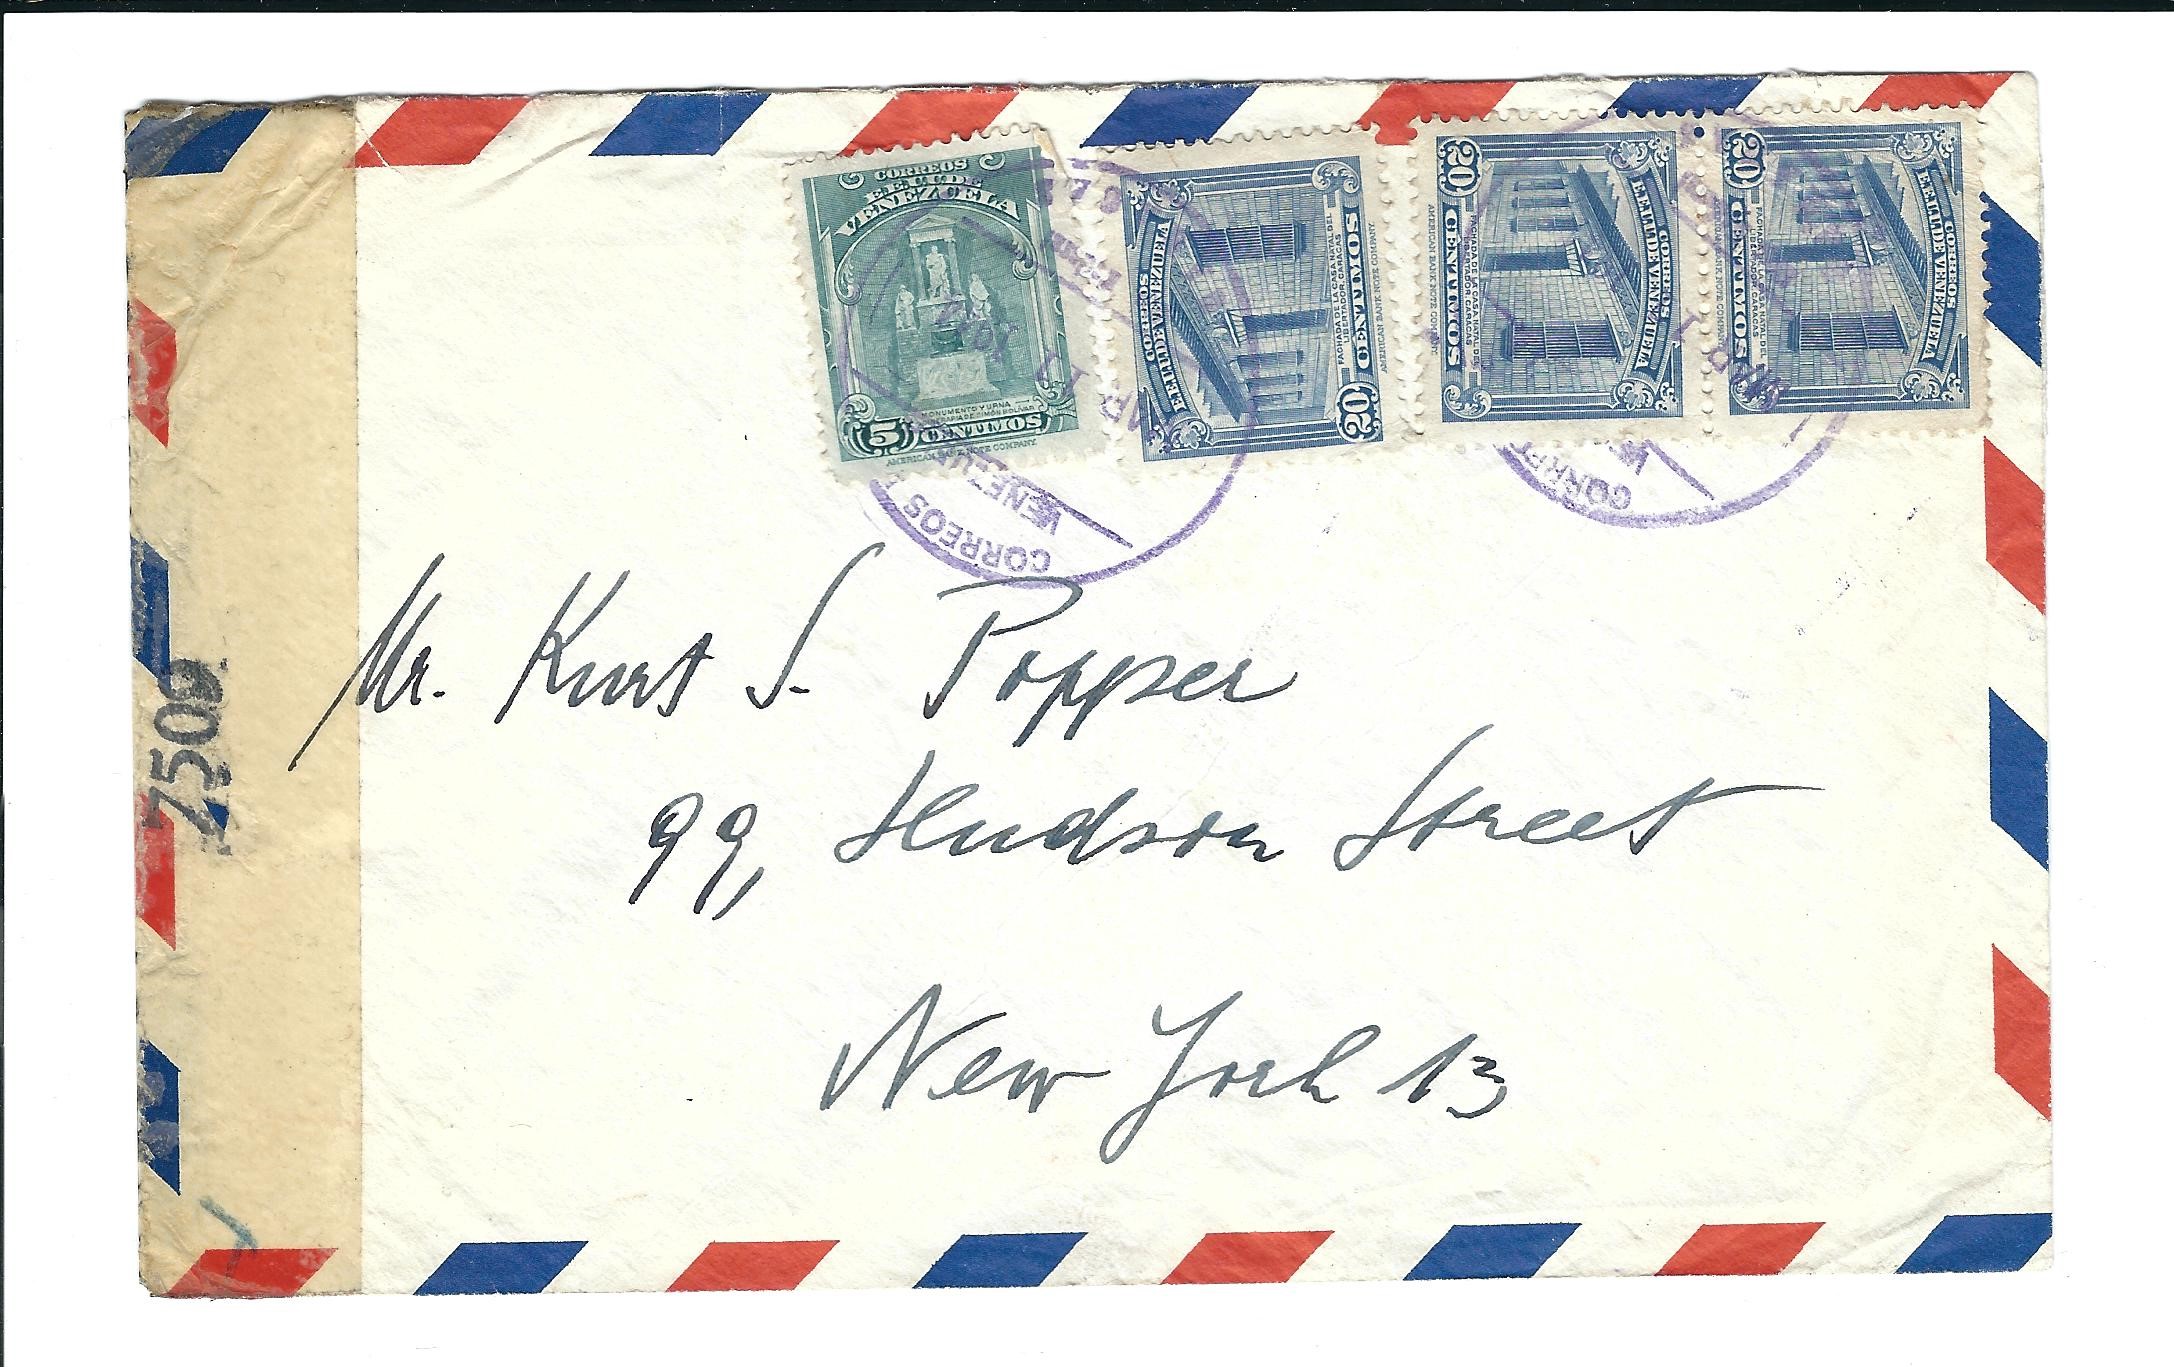 CORREOS
EE.UU. DE
VENEZUELA
MONUMENTO Y URNA
CINERARIA DE SIMON BOLIVAR
5 CENTIMOS
AMERICAN BANK NOTE COMPANY
CORREOS
EE.UU. DE VENEZUELA
FACHADA DE LA CASA NATAL DEL
LIBERTADOR. CARACAS
20 CENTIMOS
AMERICAN BANK NOTE COMPANY
CORREOS
EE.UU. DE VENEZUELA
FACHADA DE LA CASA NATAL DEL
LIBERTADOR. CARACAS
20 CENTIMOS
AMERICAN BANK NOTE COMPANY
CORREOS
EE.UU. DE VENEZUELA
FACHADA DE LA CASA NATAL DEL
LIBERTADOR. CARACAS
20 CENTIMOS
AMERICAN BANK NOTE COMPANY
CORREOS
VENEZUELA
7500
Mr. Kurt S. Popper
99, Hudson Street
New York 13